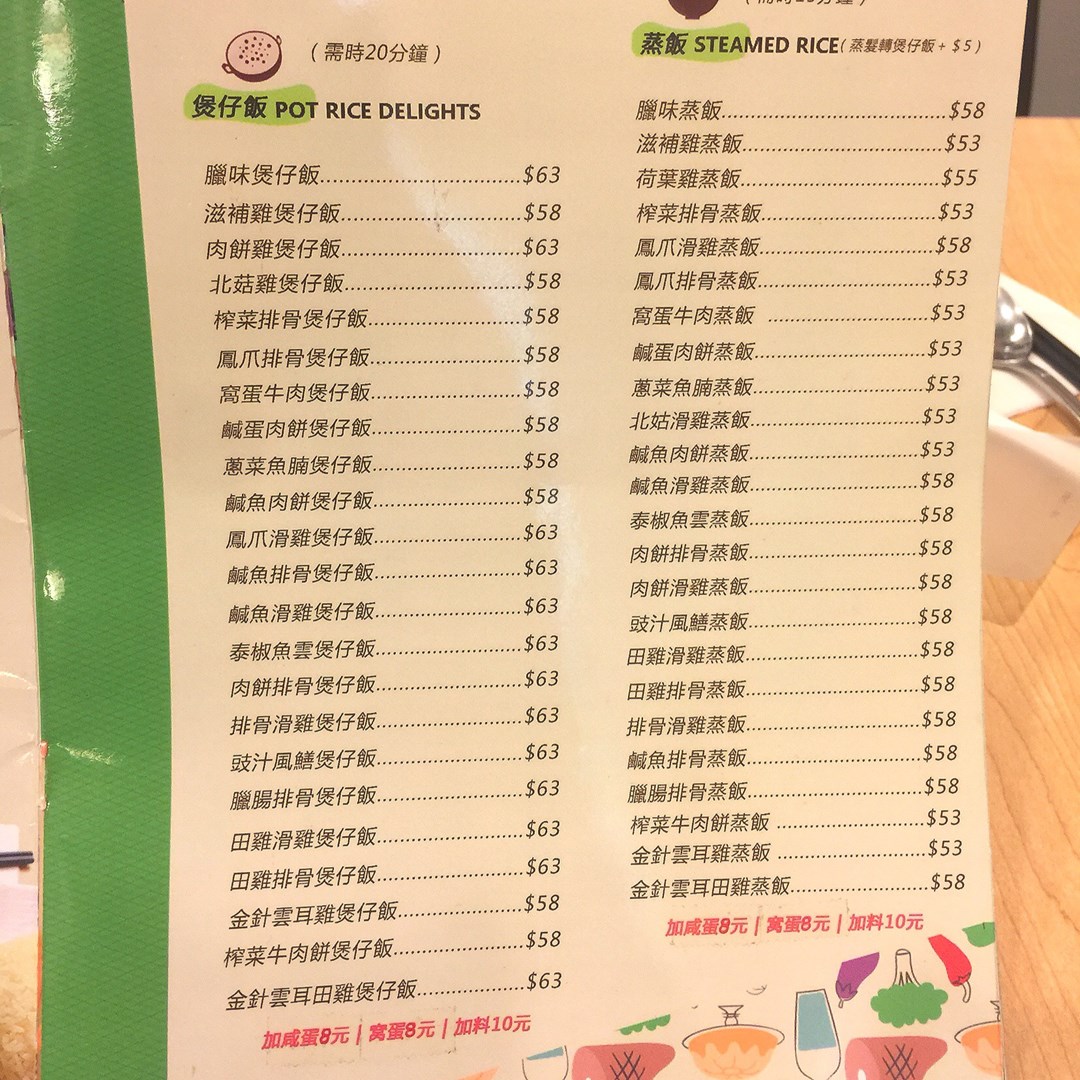 （需時20分鐘）
煲仔飯 POT RICE DELIGHTS
臘味煲仔飯....................................$63
滋補雞煲仔飯................................$58
肉餅雞煲仔飯................................$63
北菇雞煲仔飯................................$58
榨菜排骨煲仔飯............................$58
鳳爪排骨煲仔飯............................$58
窩蛋牛肉煲仔飯............................$58
鹹蛋肉餅煲仔飯............................$58
蔥菜魚腩煲仔飯............................$58
鹹魚肉餅煲仔飯............................$58
鳳爪滑雞煲仔飯............................$63
鹹魚排骨煲仔飯............................$63
鹹魚滑雞煲仔飯............................$63
泰椒魚雲煲仔飯............................$63
肉餅排骨煲仔飯............................$63
排骨滑雞煲仔飯............................$63
豉汁風鱔煲仔飯............................$63
臘腸排骨煲仔飯............................$63
田雞滑雞煲仔飯............................$63
田雞排骨煲仔飯............................$63
金針雲耳雞煲仔飯........................$58
榨菜牛肉餅煲仔飯........................$58
金針雲耳田雞煲仔飯....................$63
加咸蛋8元 | 窩蛋8元 | 加料10元
蒸飯 STEAMED RICE（蒸髮轉煲仔飯 + $5）
臘味蒸飯........................................$58
滋補雞蒸飯....................................$53
荷葉雞蒸飯....................................$55
榨菜排骨蒸飯................................$53
鳳爪滑雞蒸飯................................$58
鳳爪排骨蒸飯................................$53
窩蛋牛肉蒸飯 ................................$53
鹹蛋肉餅蒸飯................................$53
蔥菜魚腩蒸飯................................$53
北姑滑雞蒸飯................................$53
鹹魚肉餅蒸飯................................$53
鹹魚滑雞蒸飯................................$58
泰椒魚雲蒸飯................................$58
肉餅排骨蒸飯................................$58
肉餅滑雞蒸飯................................$58
豉汁風鱔蒸飯................................$58
田雞滑雞蒸飯................................$58
田雞排骨蒸飯................................$58
排骨滑雞蒸飯................................$58
鹹魚排骨蒸飯................................$58
臘腸排骨蒸飯................................$58
榨菜牛肉餅蒸飯 ............................$53
金針雲耳雞蒸飯 ............................$53
金針雲耳田雞蒸飯........................$58
加咸蛋8元 | 窩蛋8元 | 加料10元